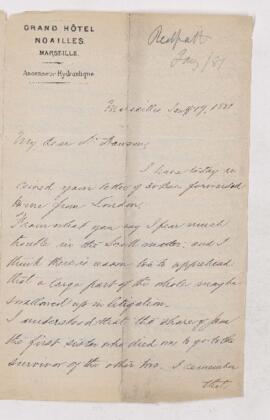 GRAND HÔTEL
NOAILLES.
MARSEILLE.
Ascenseur Hydraulique
Redpath
Jany /81
Marseilles Jany 19, 1881
My dear Dr Dawson,
I have today re
ceived your letter of 30 Dec forwarded
to me from London.
From what you say I fear much
trouble in the Scott matter; and I
think there is reason too to apprehend
that a large part of the whole may be
swallowed up in litigation.
I understood that the share of
the first sister who died was to go to the
survivor of the other two. I remember
that